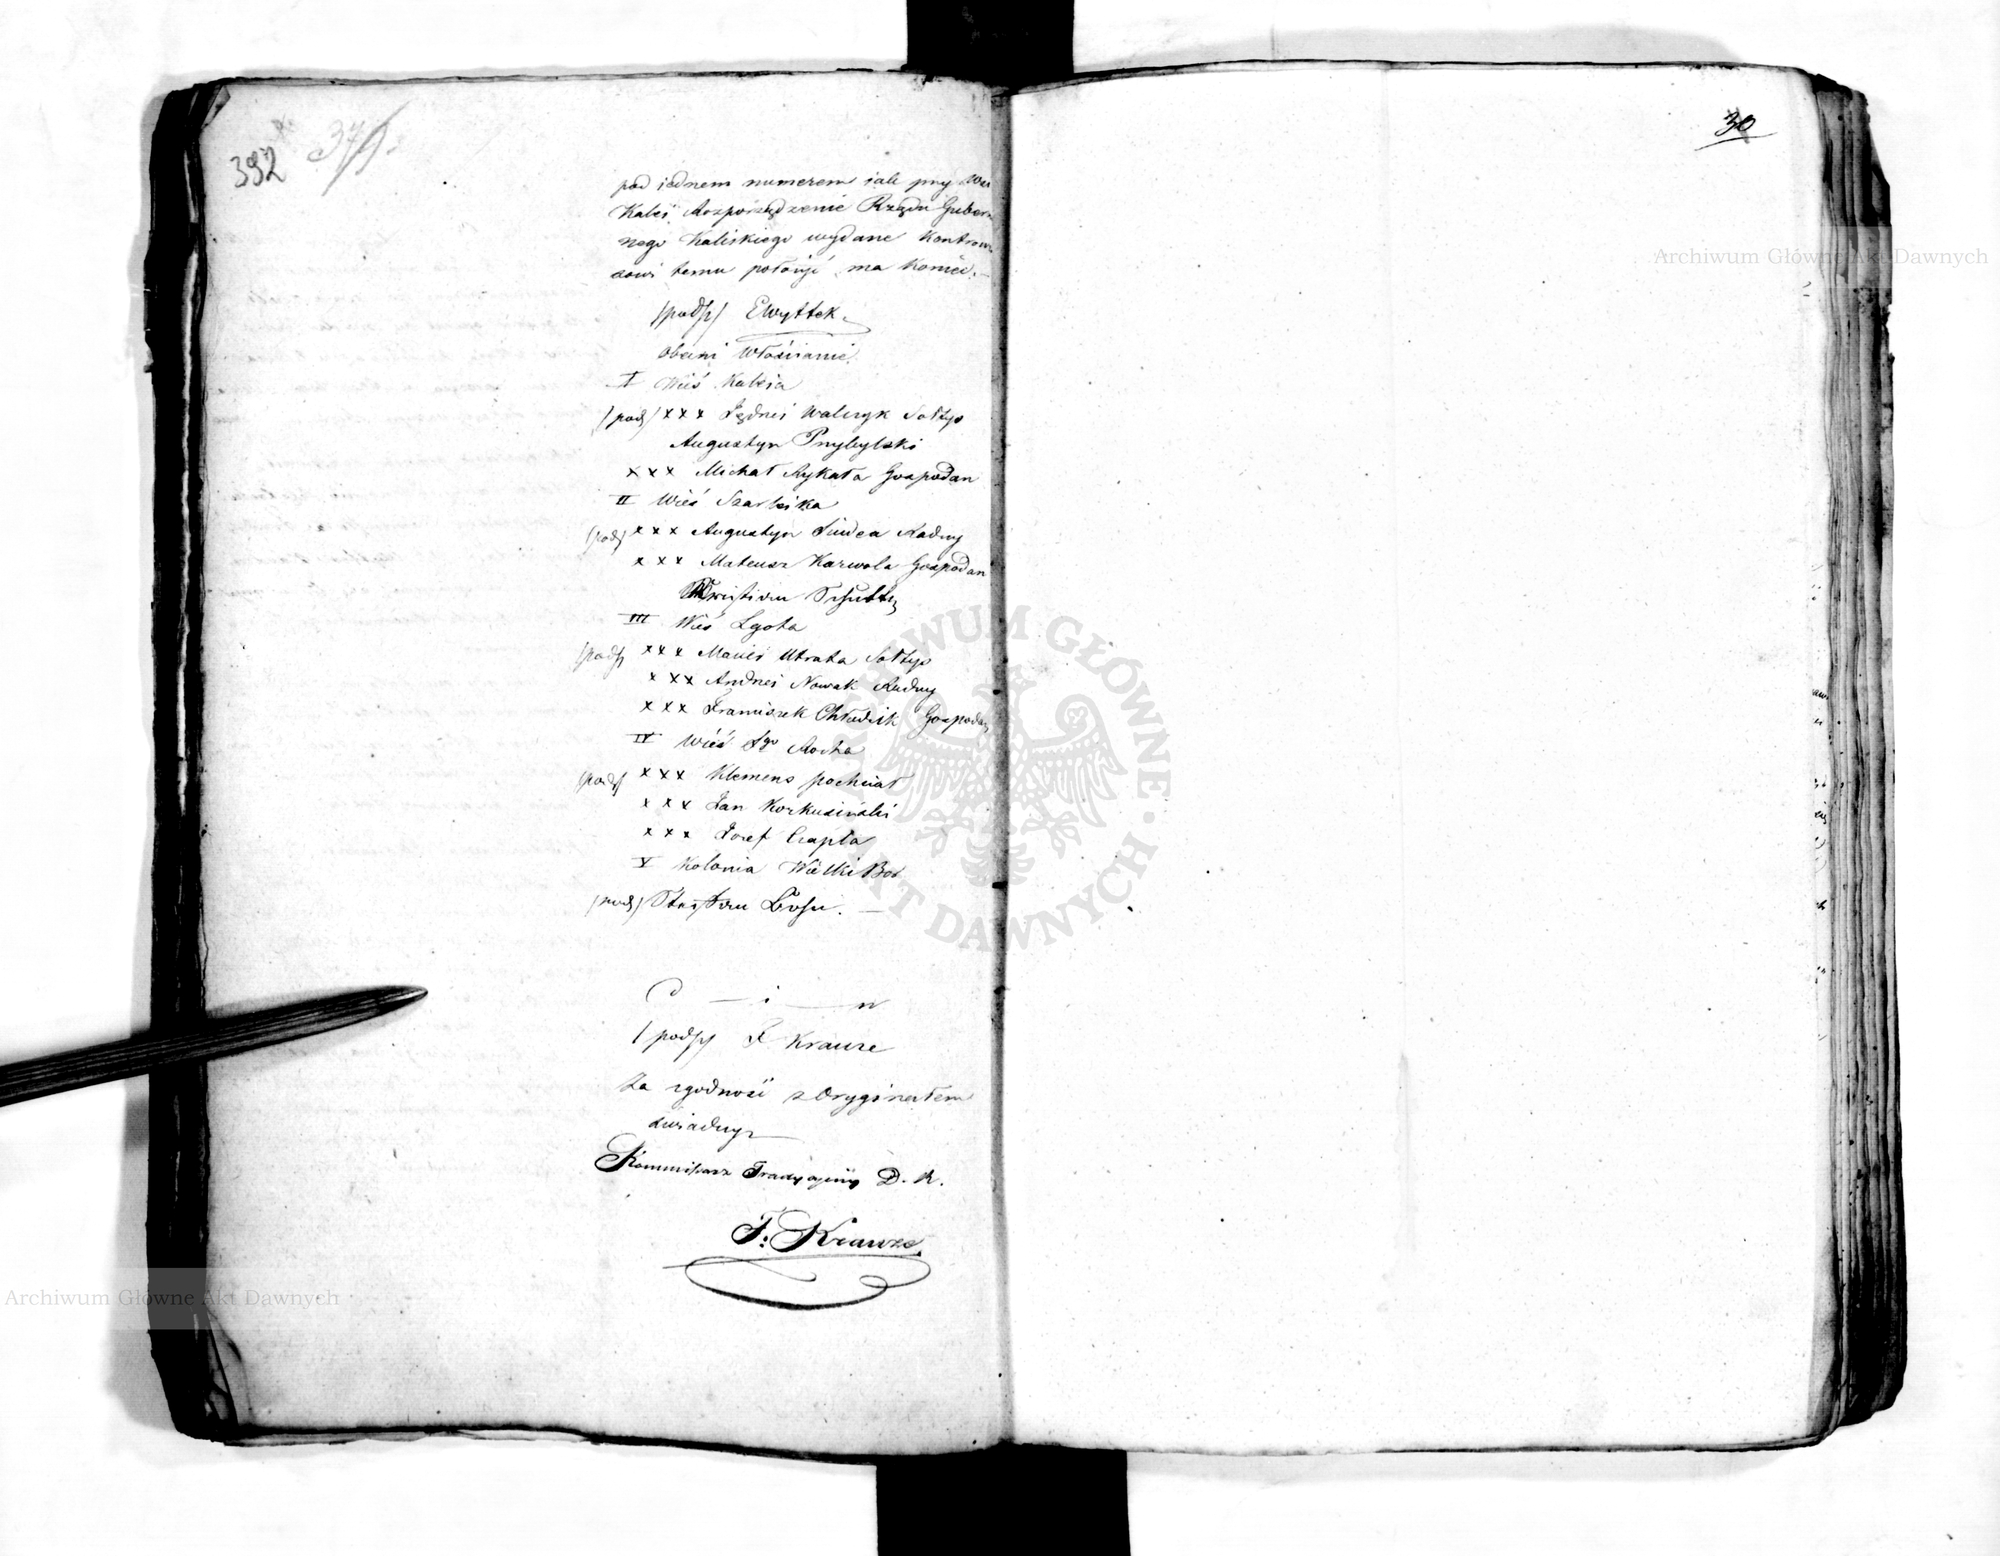 392
30
pod iednem numerem iak przy wsi
Kalei Rozporządzenie Rządu Guber
nego Kaliskiego wydane Kontrower
sowi temu położyć ma Koniec.
/podp/ EWyttek
Obecni Włościanie
I Wieś Kaleia
/pod/ xxx Jędrzei Walczyk Sołtys
Augustyn Przybylski
xxx Michał Rykała Gospodarz
II Wieś Szarleika
/pod/ xxx Augustyn Radny
xxx Mateusz Karwola Gospodarz
Christian Schultz
III Wieś Lgota
/podp xxx Maciei Utrata Sołtys
xxx Andrzei Nowak Radny
xxx Franciszek Gospodarz
IV Wieś Sgo Rocha
/pod/ xxx Klemens
xxx Jan
xxx Jozef Czapla
V Kolonia Wielki Bor
/pod/
C — i — n
/podp/ F. Krauze
Za zgodność z Oryginałem
świadczy
Kommissarz Tradycyiny D. K.
F: Krauze
ARCHIWUM GŁÓWNE AKT DAWNYCH
Archiwum Główne Akt Dawnych
Archiwum Główne Akt Dawnych